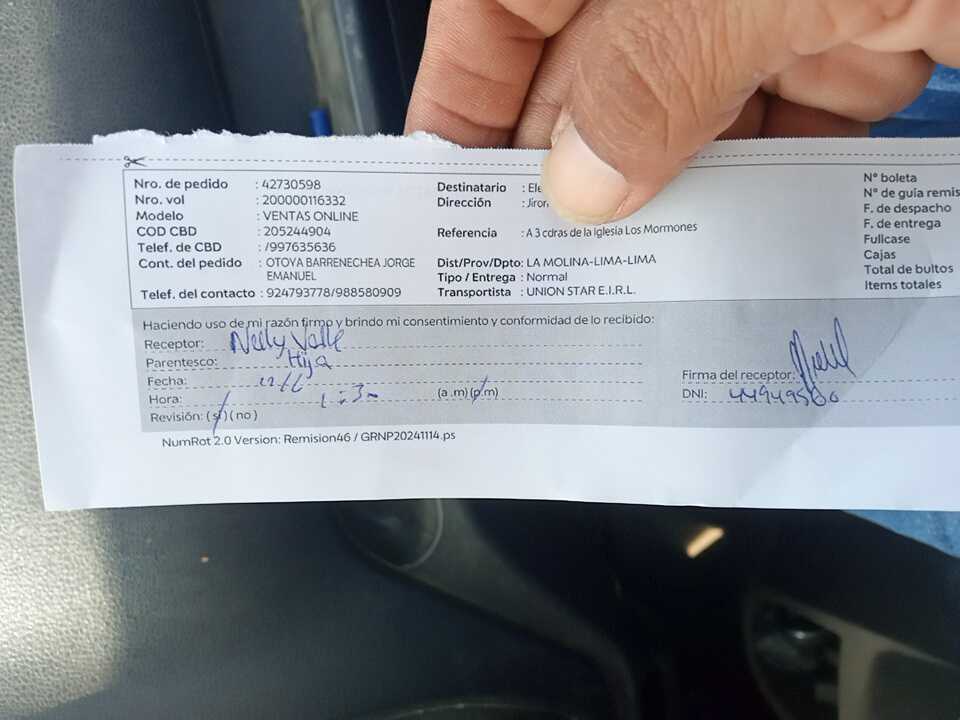 Nro. de pedido : 42730598
Nro. vol : 200000116332
Modelo : VENTAS ONLINE
COD CBD : 205244904
Telef. de CBD : /997635636
Cont. del pedido : OTOYA BARRENECHEA JORGE
EMANUEL
Telef. del contacto : 924793778/988580909
Destinatario : Ele
Dirección : Jiron
Referencia : A 3 cdras de la Iglesia Los Mormones
Dist/Prov/Dpto: LA MOLINA-LIMA-LIMA
Tipo / Entrega : Normal
Transportista : UNION STAR E.I.R.L.
N° boleta
N° de guía remis
F. de despacho
F. de entrega
Fullcase
Cajas
Total de bultos
Items totales
Haciendo uso de mi razón firmo y brindo mi consentimiento y conformidad de lo recibido:
Receptor: Nelly Valle
Parentesco: Hija
Fecha:
Hora: (a .m) (p.m)
Revisión: (si) (no)
Firma del receptor:
DNI:
NumRot 2.0 Version: Remision46 / GRNP20241114.ps